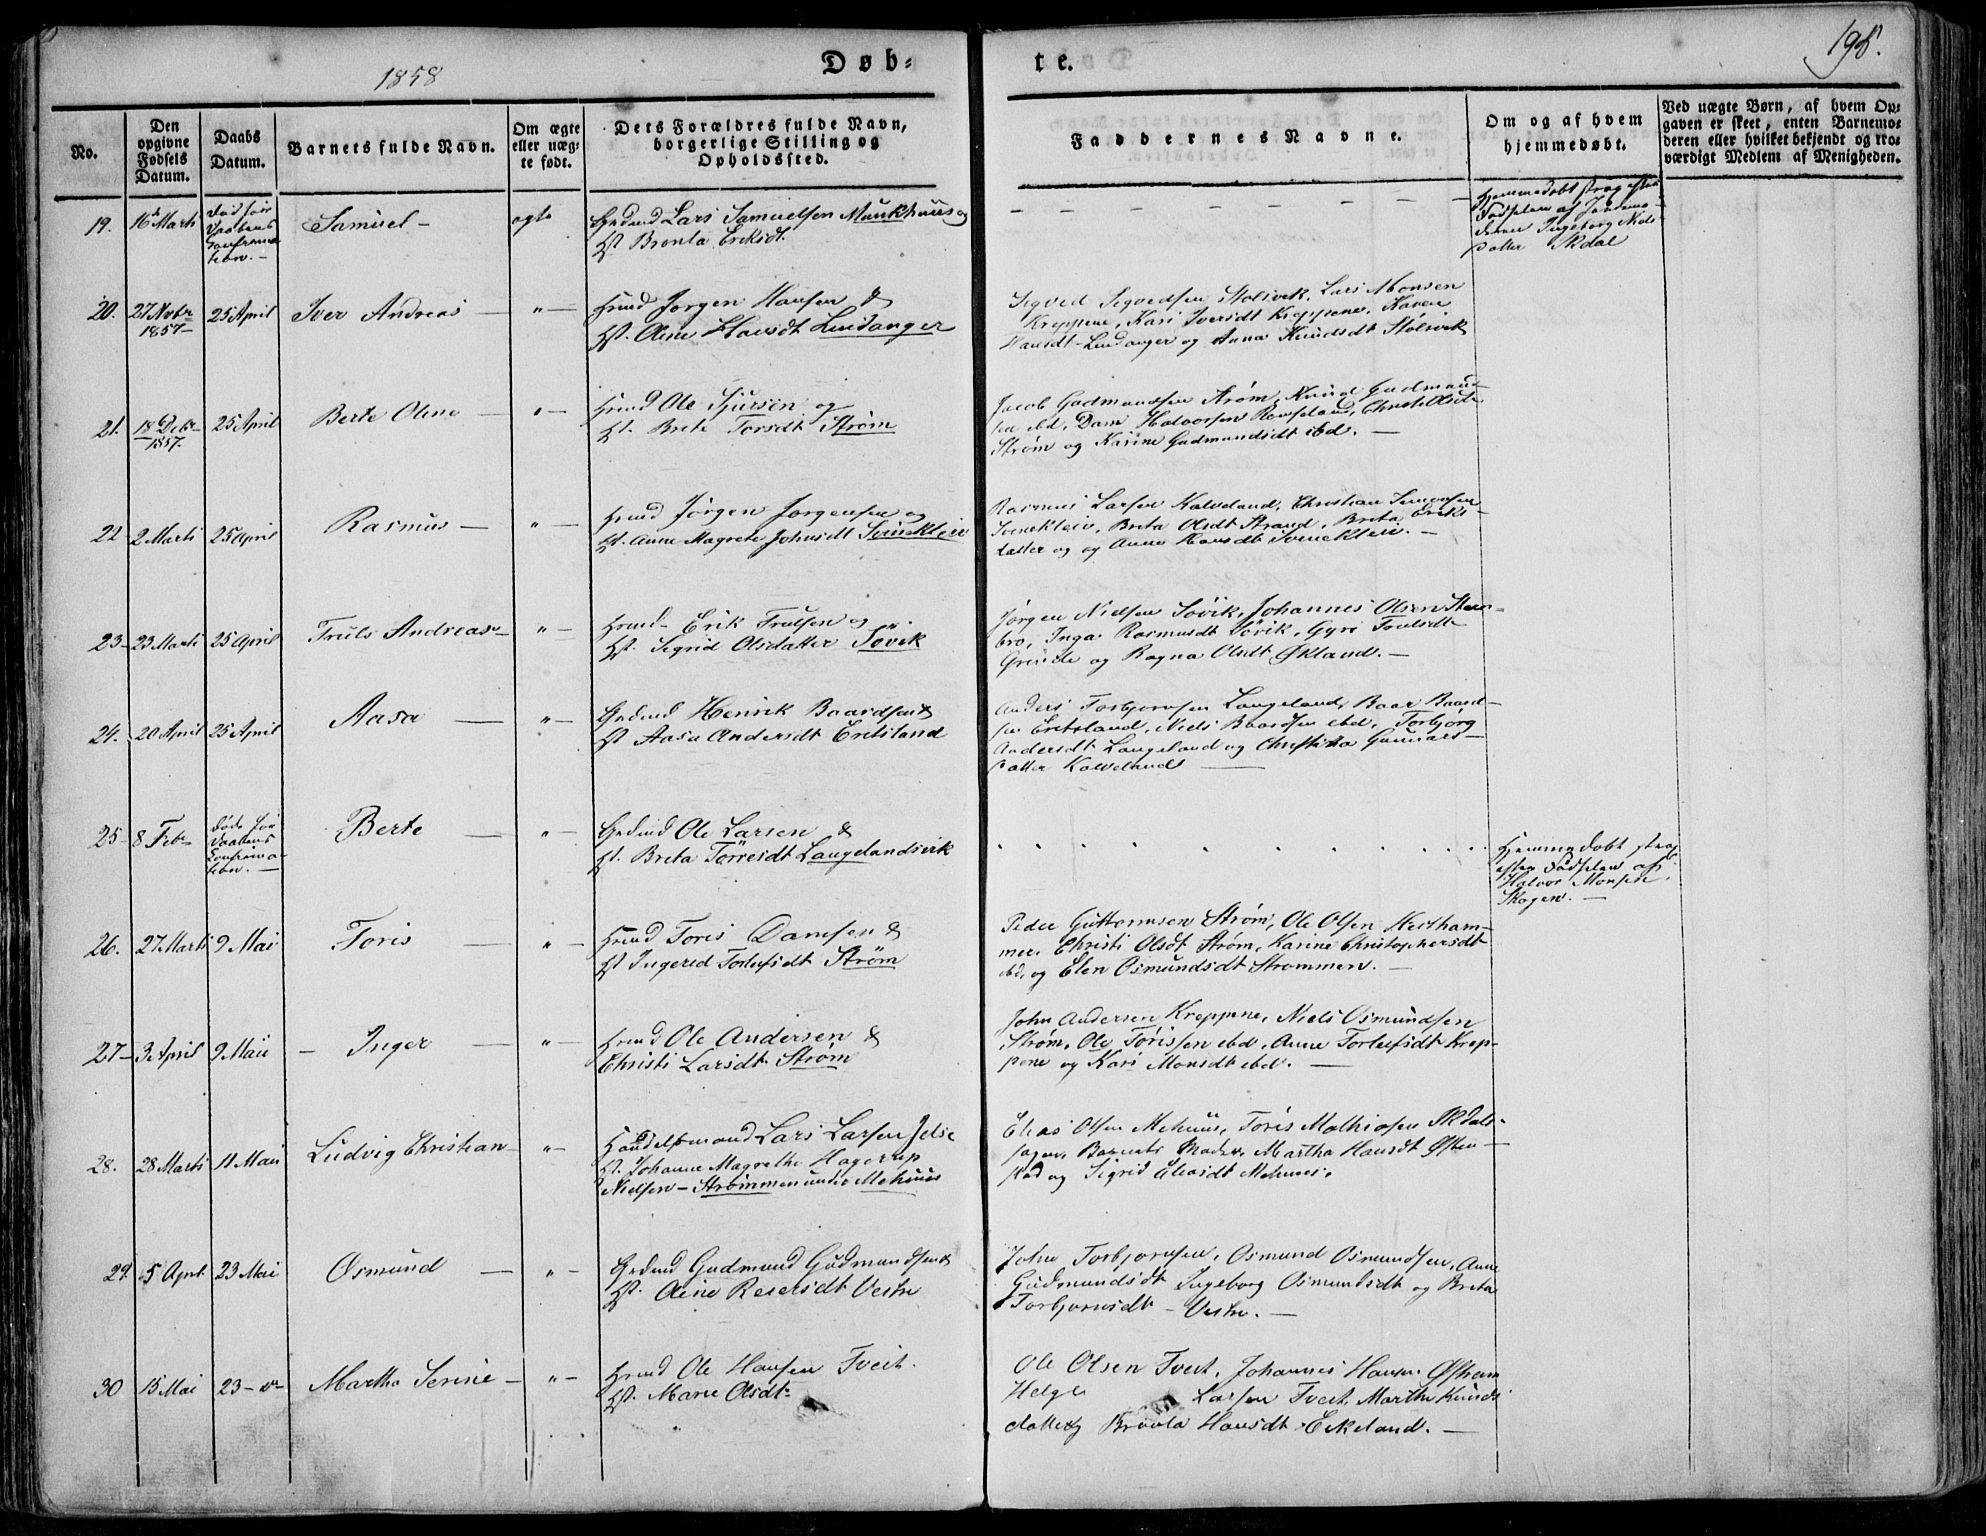 1858
Døb-
te.
198.
No.
Den
opgivne
Fødsels
Datum.
Daabs
Datum.
Barnets fulde Navn.
Om ægte
eller uæg-
te født.
Dets Forældres fulde Navn,
borgerlige Stilling og
Opholdssted.
Faddernes Navne.
Om og af hvem
hjemmedøbt.
Ved uægte Børn, af hvem Op-
gaven er skeet, enten Barnemo-
deren eller hvilket bekjendt og tro-
værdigt Medlem af Menigheden.
19. 16 Marti
Død før
Daabens
Confirma
tion.-
Samuel -
ægte
Grdmd Lars Samuelsen Munkhuus og
H. Bronla Eriksdt.
Hjemmedøbt strax efter
Fødselen af Jordemo-
deren Ingeborg Niels
datter Økdal
20. 27 Novbr 1857- 25 April
Iver Andreas
Hmd Jørgen Hansen &
H. Oline Hansdt Lindanger
Sigved Sigvedsen Stølsvik, Lars Monsen
Kreppene, Kari Iversdt Kreppene, Karen
Hansdt Lindanger og Anna Knudsdt Stølsvik
21. 18 Debr 1857. 25 April
Berte Oline
Hmd Ole Sjursen og
H. Brete Torsdt Strøm
Jacob Gudmundsen Strøm, Knud Gudmund-
sen ibd, Dam Halvorsen , Christi Olsdt
Strøm og Karine Gudmundsdt ibd. -
22 2 Marti 25 April
Rasmus -
Hmd Jørgen Jørgensen og
H. Anne Magrete Johnsdt Svineklei
Rasmus Larsen Kalveland, Christian Simonsen
Svineklei, Brita Olsdt Strand, Brita Eriks
datter og og Anne Hansdt Svineklei. -
23- 23 Marti 25 April
Truls Andreas
Hmd- Erik Trulsen og
H. Sigrid Olsdatter Søvik
Jørgen Nielsen Søvik, Johannes Olsen Steen-
bro, Inga Rasmusdt Søvik, Gyri Trulsdt
Grinde og Ragna Olsdt Økland. -
24. 20 April 25 April
Aasa
Grdmd Henrik Baardsen &
H Aasa Andersdt Eritsland
Anders Torbjørnsen Langeland, Baar Baard-
sen Eritsland, Niels Baardsen ibd, Torbjørg
Andersdt Langeland og Christina Gunnars-
datter Kalveland
25- 8 Feb
Døde før
Daabens
Confirma-
tion. -
Berte
Grdmd Ole Larsen &
H. Breta Tørresdt Langelandsvik
Hjemmedøbt strax
efter Fødselen af
Halvor Monsen
Skogen. -
26. 27 Marti 9 Mai
Toris
Hmd Toris Damsen &
H Ingerid Torleifsdt Strøm
Peder Guttormsen Strøm, Ole Olsen Hestham-
mer, Christi Olsdt Strøm, Karine Christophersdt
ibd, og Elen Osmundsdt Strømmen. -
27- 3 April 9 Maii
- Inger
Hmd Ole Andersen &
Christi Larsdt Strøm
John Andersen Kreppene, Niels Osmundsen
Strøm, Ole Tørissen ibd, Anne Torleifsdt Krep-
pene og Kari Monsdt ibd. -
28. 28 Marti 11 Maii
Ludvig Christian
Handelsmand Lars Larsen Jelse
H. Johanne Magrethe Hagerup
Nielsen - Strømmen under Mehuus
Elias Olsen Mehuus, Tøris Mathiasen Økdals-
, Barnets Moder, Martha Hansdt Østen-
stad og Sigrid Eliasdt Mehuus.
29. 5 April 23 Mai
Osmund
Grdmd Gudmund Gudmundsen &
H. Oline Reiersdt Vestre
John Torbjørnsen, Osmund Osmundsen, Anne
Gudmundsdt Ingeborg Osmundsdt og Breta
Torbjørnsdt - Vestre. -
30 15 Mai 23 - do
Martha Serine -
Hmd Ole Hansen Tveit.
H. Marie Olsdt
Ole Olsen Tveit, Johannes Hansen Østhem
Helge Larsen Tveit, Marthe Knuds
datter og Bronla Hansdt Eikeland. -